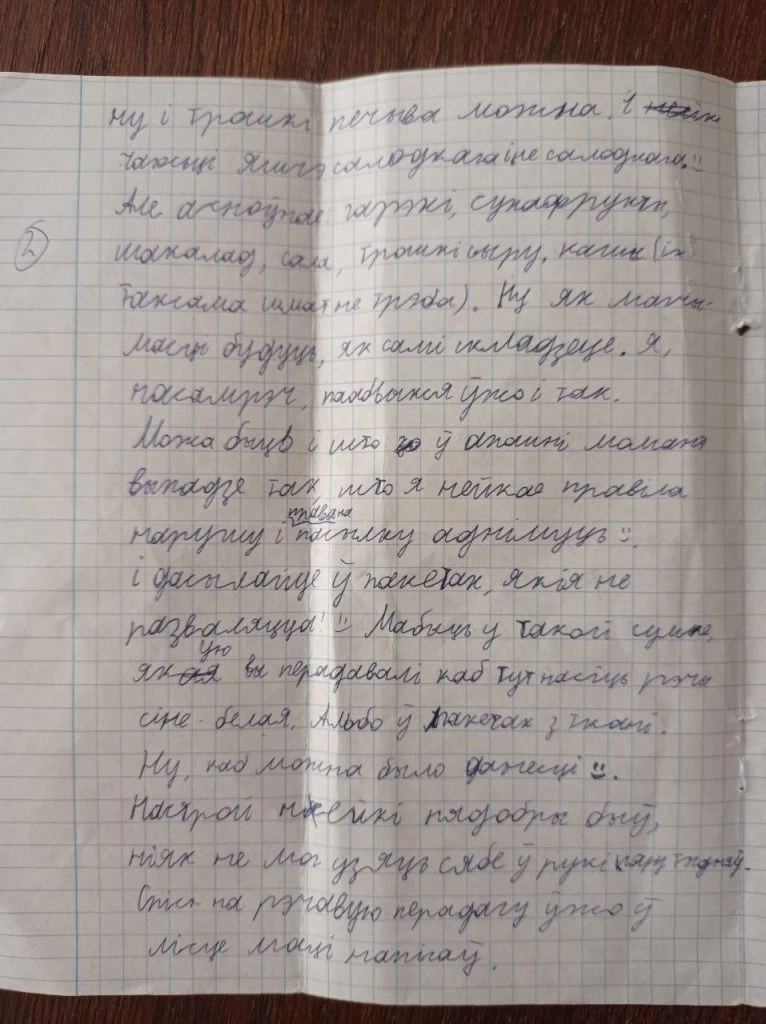 ну і трошкі печыва можна. І
часткі яшчэ салодкага і не салоднага. :)
Але асноўнае: гарэхі, сухафрукты,
2
шакалад, сала, трошкі сыру, кашы (іх
таксама шмат не трэба). Ну як магчы-
масць будуць, як самі складзеце. Я,
насамрэч, паабвыкся ўжо і так.
Можа быць і што ў апошні момант
выпадзе так, што я нейкае правіла
права на
нарушу і пасылку аднімуць :).
і дасылайце ў пакетах, якія не
разваляцца! :) Мабыць у такой сумцы,
ую
як вы перадавалі каб тут насіць рэчы
сіне-белая. Альбо ў пакетах з ткані.
Ну, каб можна было данесці :).
Настрой нейкі нядобры быў,
ніяк не мог узяць сябе ў рукі пару тыдняў.
Спіс на рэчавую перадачу ўжо ў
лісце маці напісаў.